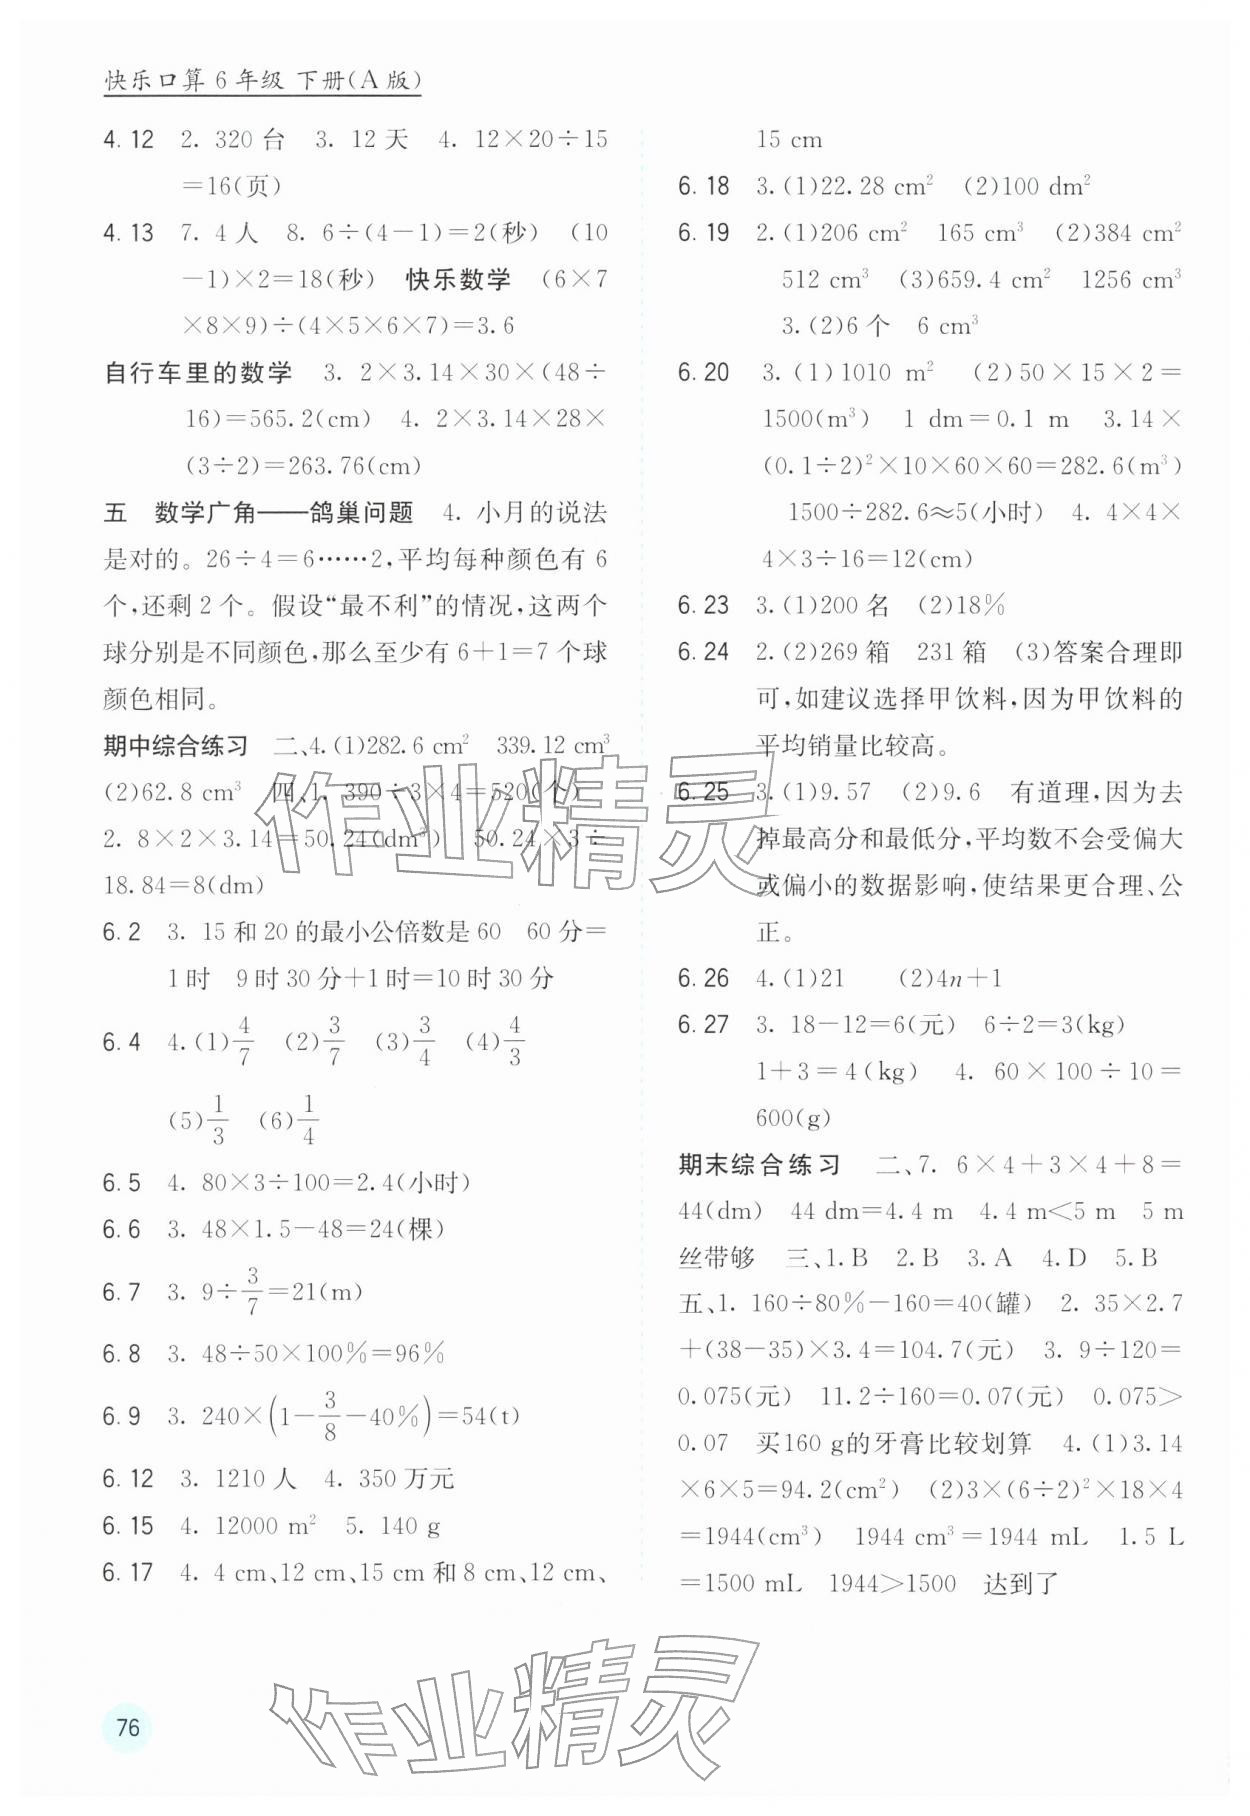 快乐口算 6 年级 下册(A 版)
4.12 2. 320 台 3. 12 天 4. 12×20÷15
=16(页)
4.13 7. 4 人 8. 6÷(4-1)=2(秒) (10
-1)×2=18(秒) 快乐数学 (6×7
×8×9)÷(4×5×6×7)=3.6
自行车里的数学 3. 2×3.14×30×(48÷
16)=565.2(cm) 4. 2×3.14×28×
(3÷2)=263.76(cm)
五 数学广角——鸽巢问题 4. 小月的说法
是对的。26÷4=6……2,平均每种颜色有 6
个,还剩 2 个。假设“最不利”的情况,这两个
球分别是不同颜色,那么至少有 6+1=7 个球
颜色相同。
期中综合练习 二、4.(1)282.6 cm² 339.12 cm³
(2)62.8 cm³ 四、1. 390÷3×4=520(个)
2. 8×2×3.14=50.24(dm³) 50.24×3÷
18.84=8(dm)
6.2 3. 15 和 20 的最小公倍数是 60 60 分=
1 时 9 时 30 分+1 时=10 时 30 分
6.4 4.(1)4/7 (2)3/7 (3)3/4 (4)4/3
(5)1/3 (6)1/4
6.5 4. 80×3÷100=2.4(小时)
6.6 3. 48×1.5-48=24(棵)
6.7 3. 9÷3/7=21(m)
6.8 3. 48÷50×100%=96%
6.9 3. 240×(1-3/8-40%)=54(t)
6.12 3. 1210 人 4. 350 万元
6.15 4. 12000 m² 5. 140 g
6.17 4. 4 cm、12 cm、15 cm 和 8 cm、12 cm、
15 cm
6.18 3.(1)22.28 cm² (2)100 dm²
6.19 2.(1)206 cm² 165 cm³ (2)384 cm²
512 cm³ (3)659.4 cm² 1256 cm³
3.(2)6 个 6 cm³
6.20 3.(1)1010 m² (2)50×15×2=
1500(m³) 1 dm=0.1 m 3.14×
(0.1÷2)²×10×60×60=282.6(m³)
1500÷282.6≈5(小时) 4. 4×4×
4×3÷16=12(cm)
6.23 3.(1)200 名 (2)18%
6.24 2.(2)269 箱 231 箱 (3)答案合理即
可,如建议选择甲饮料,因为甲饮料的
平均销量比较高。
6.25 3.(1)9.57 (2)9.6 有道理,因为去
掉最高分和最低分,平均数不会受偏大
或偏小的数据影响,使结果更合理、公
正。
6.26 4.(1)21 (2)4n+1
6.27 3. 18-12=6(元) 6÷2=3(kg)
1+3=4(kg) 4. 60×100÷10=
600(g)
期末综合练习 二、7. 6×4+3×4+8=
44(dm) 44 dm=4.4 m 4.4 m<5 m 5 m
丝带够 三、1.B 2.B 3.A 4.D 5.B
五、1. 160÷80%-160=40(罐) 2. 35×2.7
+(38-35)×3.4=104.7(元) 3. 9÷120=
0.075(元) 11.2÷160=0.07(元) 0.075>
0.07 买160 g的牙膏比较划算 4.(1)3.14
×6×5=94.2(cm²) (2)3×(6÷2)²×18×4
=1944(cm³) 1944 cm³=1944 mL 1.5 L
=1500 mL 1944>1500 达到了
作业精灵
作业精灵
76